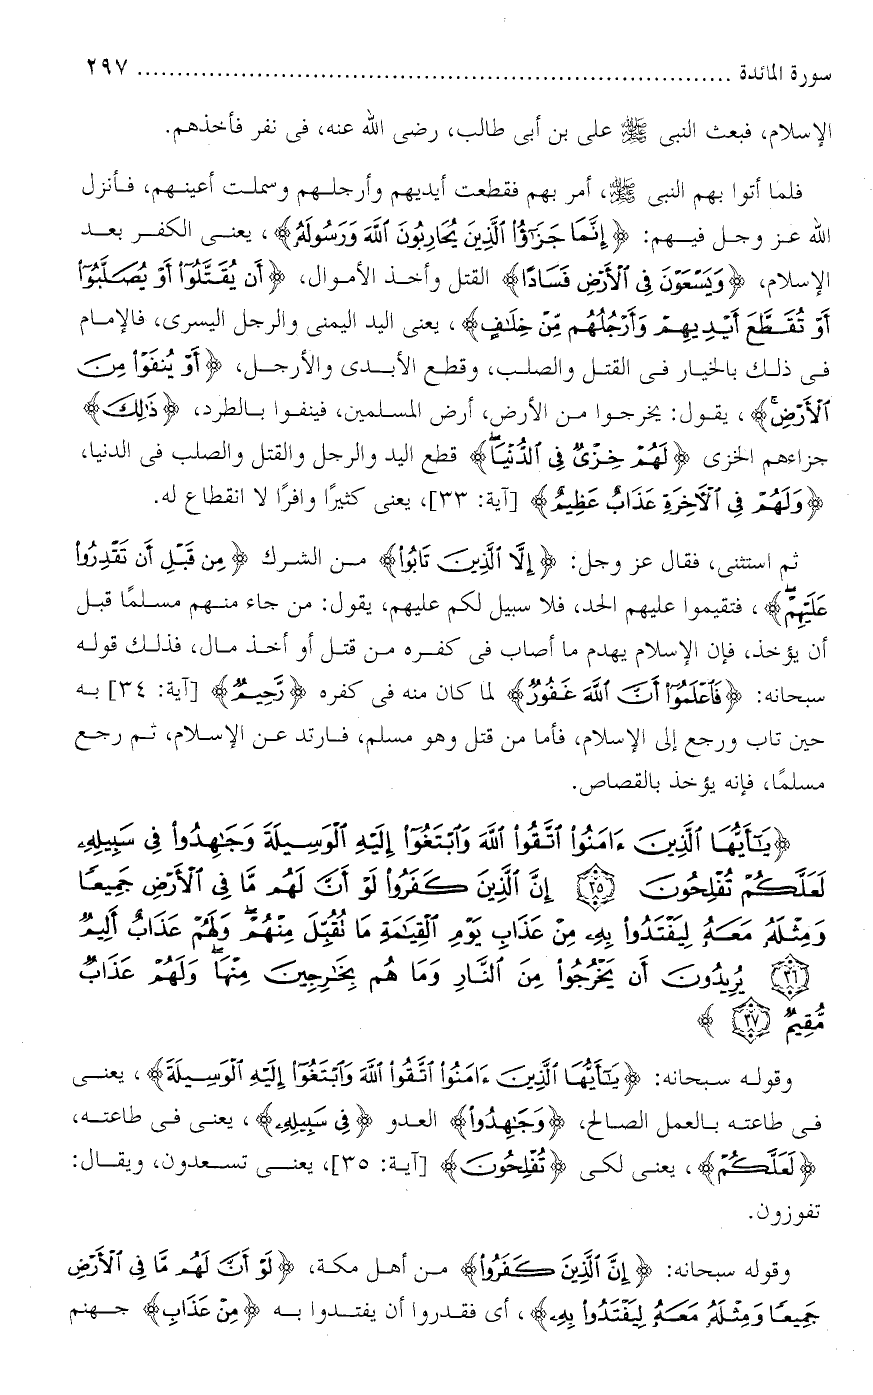 سورة المائدة ........................................................................ ٢٩٧
الإسلام، فبعث النبى ﷺ على بن أبى طالب، رضى الله عنه، فى نفر فأخذهم.
فلما أتوا بهم النبى ﷺ، أمر بهم فقطعت أيديهم وأرجلهم وسملت أعينهم، فأنزل
الله عز وجل فيهم: ﴿إِنَّمَا جَزَٰٓؤُا۟ ٱلَّذِينَ يُحَارِبُونَ ٱللَّهَ وَرَسُولَهُۥ﴾، يعنى الكفر بعد
الإسلام، ﴿وَيَسْعَوْنَ فِى ٱلْأَرْضِ فَسَادًا﴾ القتل وأخذ الأموال، ﴿أَن يُقَتَّلُوٓا۟ أَوْ يُصَلَّبُوٓا۟
أَوْ تُقَطَّعَ أَيْدِيهِمْ وَأَرْجُلُهُم مِّنْ خِلَٰفٍ﴾، يعنى اليد اليمنى والرجل اليسرى، فالإمام
فى ذلك بالخيار فى القتل والصلب، وقطع الأيدى والأرجل، ﴿أَوْ يُنفَوْا۟ مِنَ
ٱلْأَرْضِ﴾، يقول: يخرجوا من الأرض، أرض المسلمين، فينفوا بالطرد، ﴿ذَٰلِكَ﴾
جزاءهم الخزى ﴿لَهُمْ خِزْىٌ فِى ٱلدُّنْيَا﴾ قطع اليد والرجل والقتل والصلب فى الدنيا،
﴿وَلَهُمْ فِى ٱلْأَخِرَةِ عَذَابٌ عَظِيمٌ﴾ [آية: ٣٣]، يعنى كثيرًا وافرًا لا انقطاع له.
ثم استثنى، فقال عز وجل: ﴿إِلَّا ٱلَّذِينَ تَابُوا۟﴾ من الشرك ﴿مِن قَبْلِ أَن تَقْدِرُوا۟
عَلَيْهِمْ﴾، فتقيموا عليهم الحد، فلا سبيل لكم عليهم، يقول: من جاء منهم مسلمًا قبل
أن يؤخذ، فإن الإسلام يهدم ما أصاب فى كفره من قتل أو أخذ مال، فذلك قوله
سبحانه: ﴿فَٱعْلَمُوٓا۟ أَنَّ ٱللَّهَ غَفُورٌ﴾ لما كان منه فى كفره ﴿رَّحِيمٌ﴾ [آية: ٣٤] به
حين تاب ورجع إلى الإسلام، فأما من قتل وهو مسلم، فارتد عن الإسلام، ثم رجع
مسلمًا، فإنه يؤخذ بالقصاص.
﴿يَٰٓأَيُّهَا ٱلَّذِينَ ءَامَنُوا۟ ٱتَّقُوا۟ ٱللَّهَ وَٱبْتَغُوٓا۟ إِلَيْهِ ٱلْوَسِيلَةَ وَجَٰهِدُوا۟ فِى سَبِيلِهِۦ
لَعَلَّكُمْ تُفْلِحُونَ ٣٥ إِنَّ ٱلَّذِينَ كَفَرُوا۟ لَوْ أَنَّ لَهُم مَّا فِى ٱلْأَرْضِ جَمِيعًا
وَمِثْلَهُۥ مَعَهُۥ لِيَفْتَدُوا۟ بِهِۦ مِنْ عَذَابِ يَوْمِ ٱلْقِيَٰمَةِ مَا تُقُبِّلَ مِنْهُمْ وَلَهُمْ عَذَابٌ أَلِيمٌ
٣٦ يُرِيدُونَ أَن يَخْرُجُوا۟ مِنَ ٱلنَّارِ وَمَا هُم بِخَٰرِجِينَ مِنْهَا وَلَهُمْ عَذَابٌ
مُّقِيمٌ ٣٧﴾
وقوله سبحانه: ﴿يَٰٓأَيُّهَا ٱلَّذِينَ ءَامَنُوا۟ ٱتَّقُوا۟ ٱللَّهَ وَٱبْتَغُوٓا۟ إِلَيْهِ ٱلْوَسِيلَةَ﴾، يعنى
فى طاعته بالعمل الصالح، ﴿وَجَٰهِدُوا۟﴾ العدو ﴿فِى سَبِيلِهِۦ﴾، يعنى فى طاعته،
﴿لَعَلَّكُمْ﴾، يعنى لكى ﴿تُفْلِحُونَ﴾ [آية: ٣٥]، يعنى تسعدون، ويقال:
تفوزون.
وقوله سبحانه: ﴿إِنَّ ٱلَّذِينَ كَفَرُوا۟﴾ من أهل مكة، ﴿لَوْ أَنَّ لَهُم مَّا فِى ٱلْأَرْضِ
جَمِيعًا وَمِثْلَهُۥ مَعَهُۥ لِيَفْتَدُوا۟ بِهِۦ﴾، أى فقدروا أن يفتدوا به ﴿مِنْ عَذَابِ﴾ جهنم